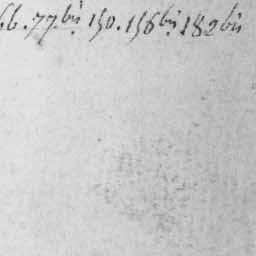 66.77.bis 150.156bis 182bis